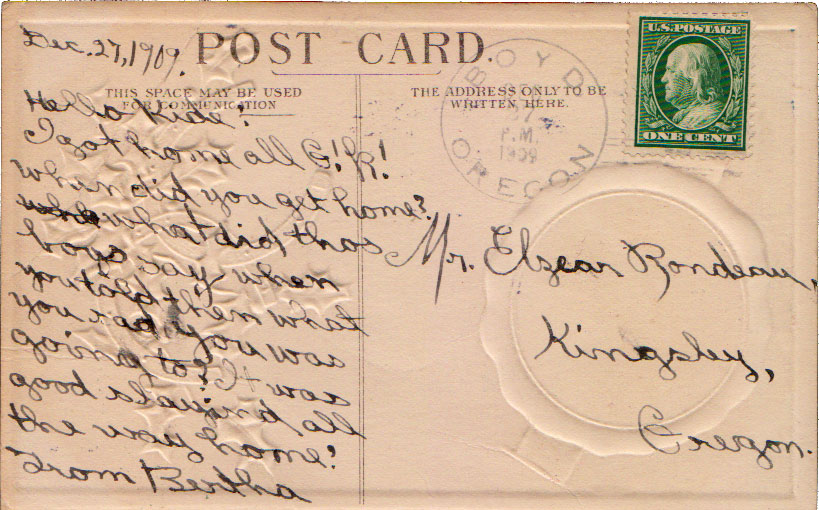 Dec. 27, 1909.
POST CARD.
THIS SPACE MAY BE USED
FOR COMMUNICATION
THE ADDRESS ONLY TO BE
WRITTEN HERE.
BOYD
27
P.M.
1909
OREGON
U.S. POSTAGE
ONE CENT
Hello Kide!
I got home all O!K!
when did you get home?
what did thos
boys say when
you told them what
you sad you was
going to? It was
good slaying all
the way home!
From Bertha
Mr. Elzear Rondeau,
Kingsley,
Oregon.